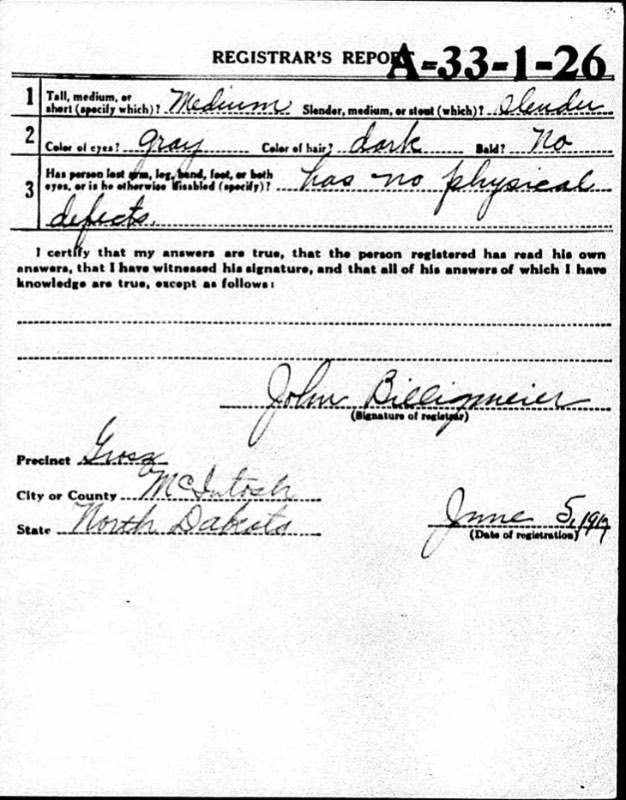 REGISTRAR'S REPORT A-33-1-26
1 Tall, medium, or short (specify which)? Medium Slender, medium, or stout (which)? Slender
2 Color of eyes? gray Color of hair? dark Bald? No
3 Has person lost arm, leg, hand, foot, or both eyes, or is he otherwise disabled (specify)? has no physical
defects.
I certify that my answers are true, that the person registered has read his own
answers, that I have witnessed his signature, and that all of his answers of which I have
knowledge are true, except as follows:
John Billigmeier
(Signature of registrar)
Precinct Grosz
City or County McIntosh
State North Dakota June 5, 1917
(Date of registration)